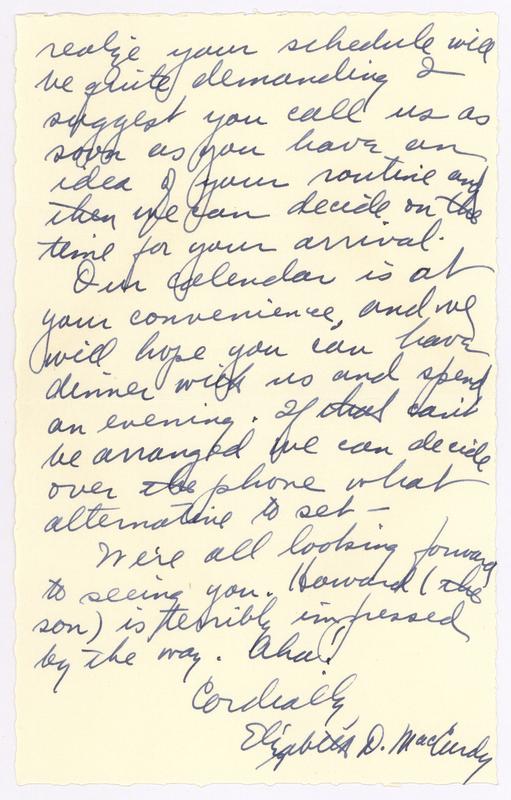 realize your schedule will
be quite demanding I
suggest you call us as
soon as you have an
idea of your routine and
then we can decide on the
time for your arrival.
Our calendar is at
your convenience, and we
will hope you can have
dinner with us and spend
an evening. If that can't
be arranged we can decide
over the phone what
alternative to set –
We're all looking forward
to seeing you. Howard (the
son) is terribly impressed
by the way. Aha!
Cordially,
Elizabeth D. MacCurdy